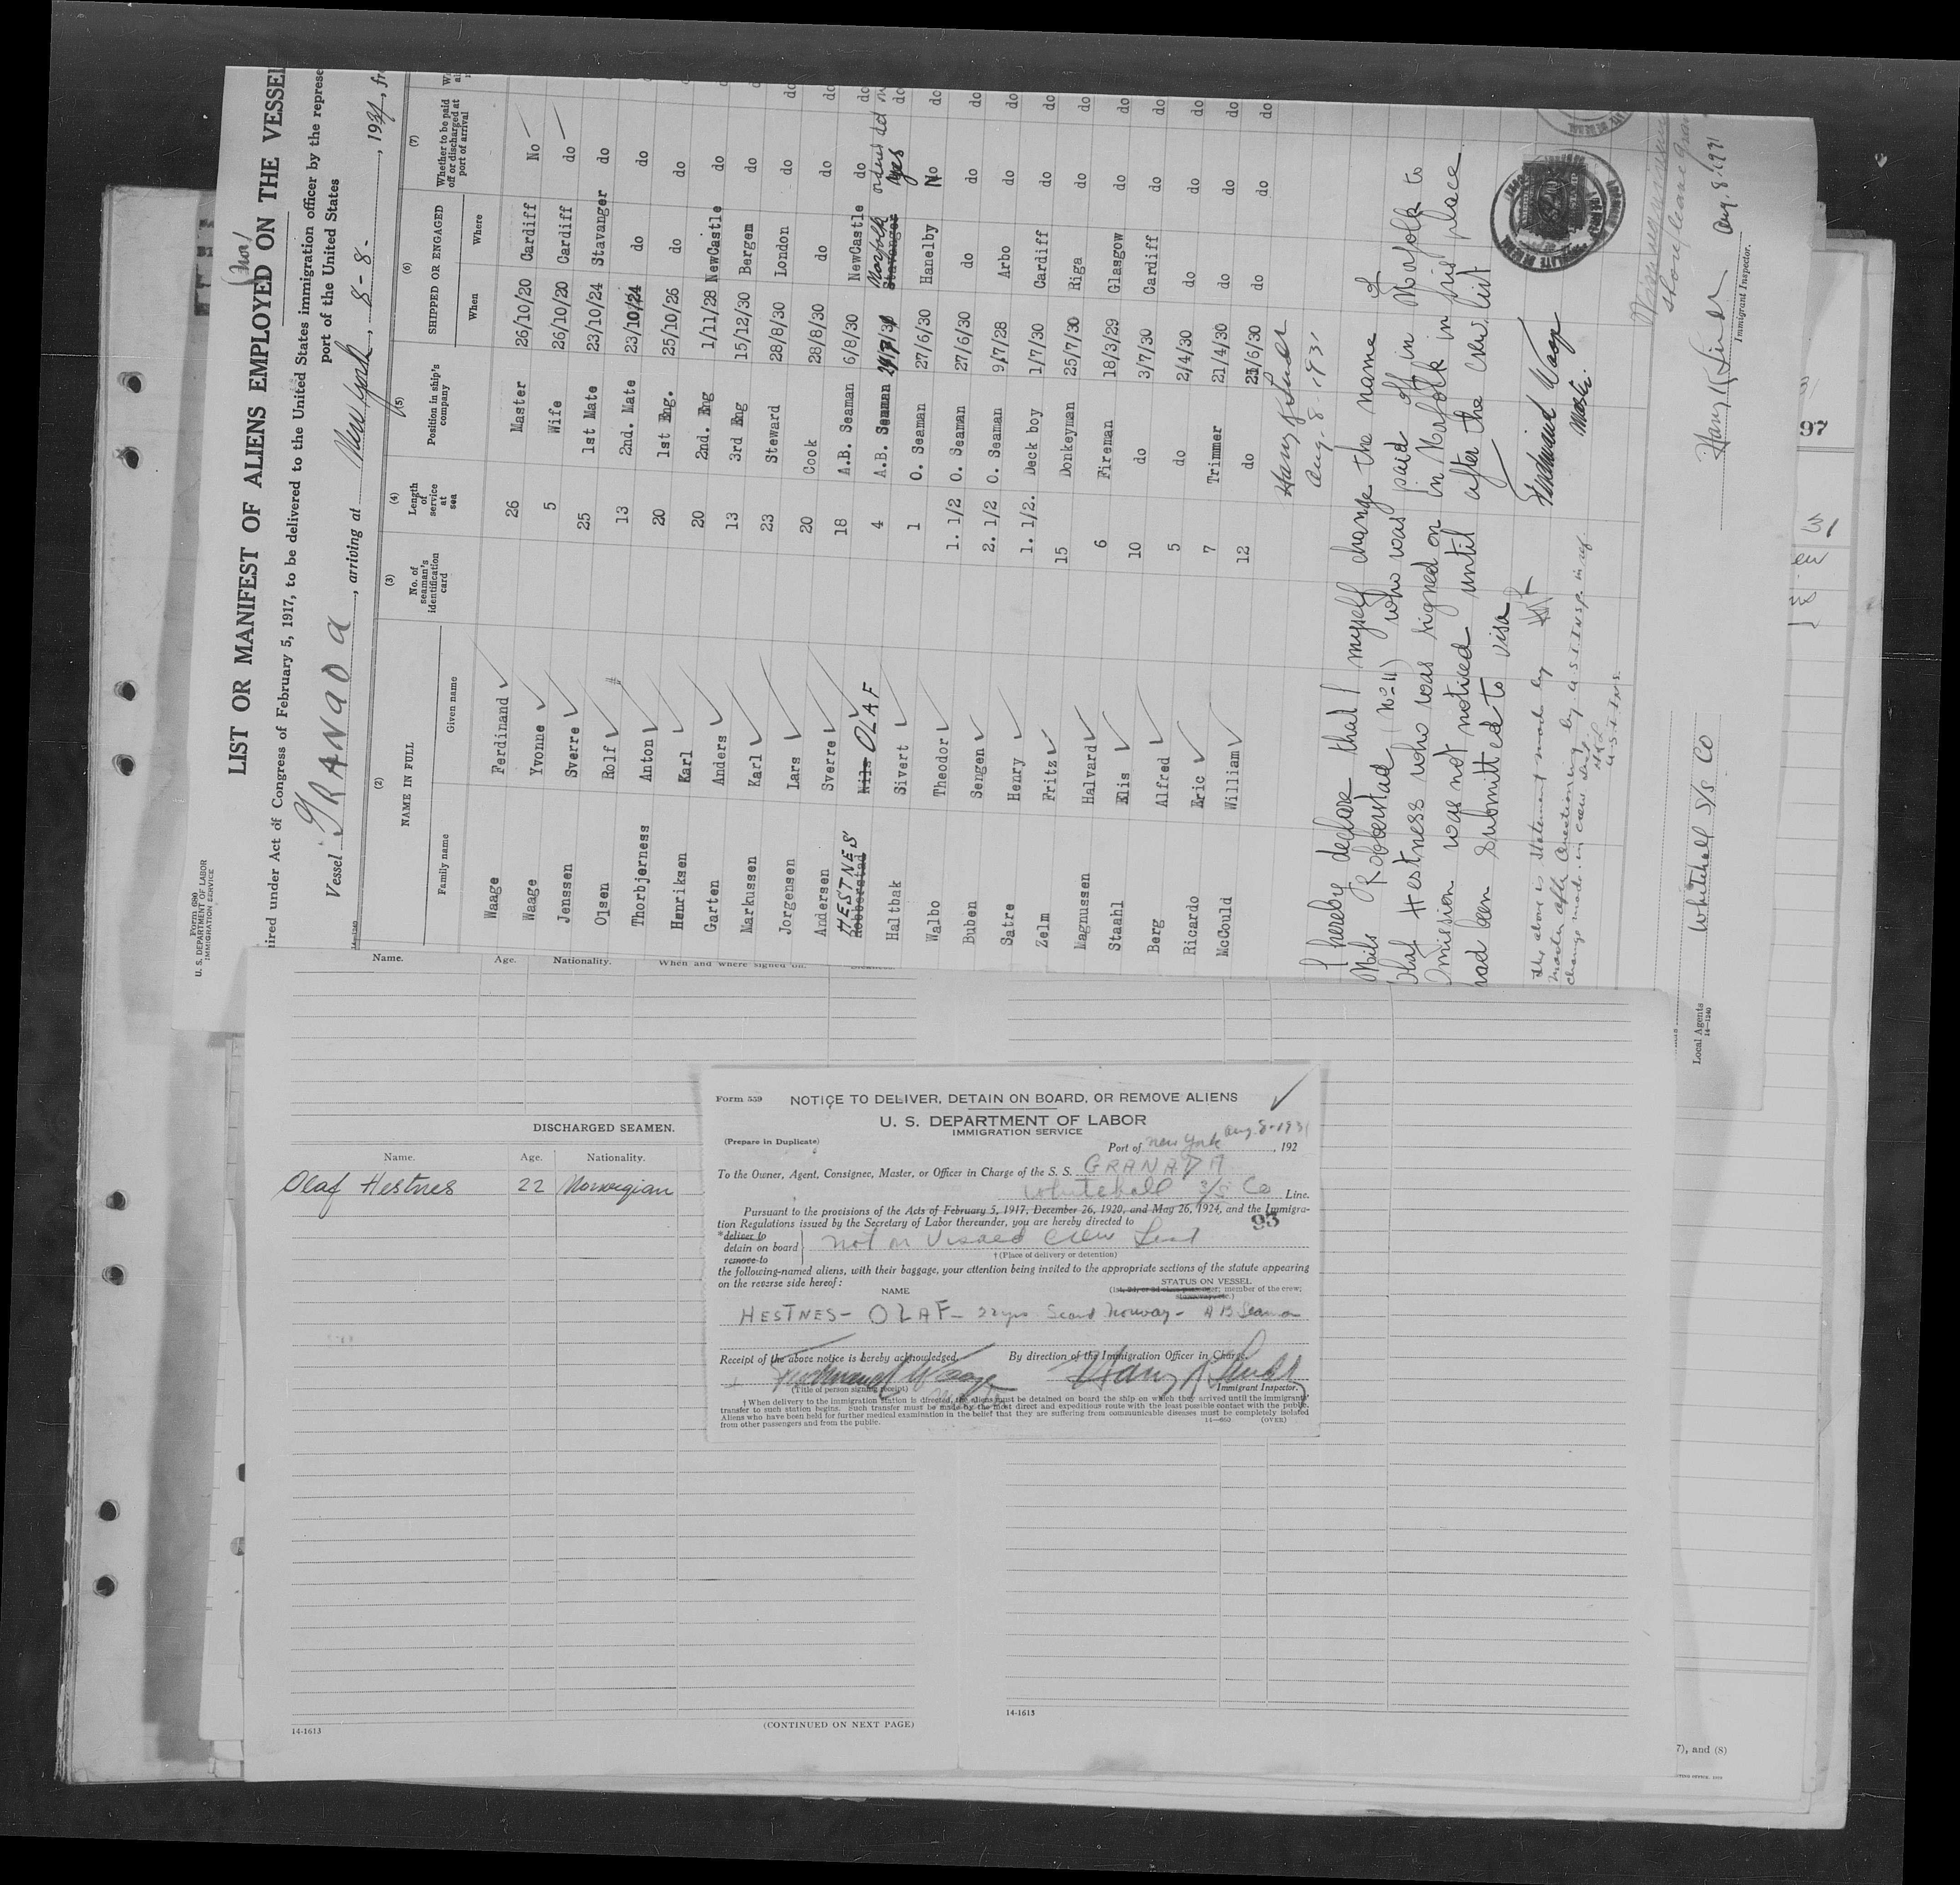 Form 680
U. S. DEPARTMENT OF LABOR
IMMIGRATION SERVICE
(Nor)
LIST OR MANIFEST OF ALIENS EMPLOYED ON THE VESSEL
ired under Act of Congress of February 5, 1917, to be delivered to the United States immigration officer by the represe
port of the United States
Vessel S/S GRANADA, arriving at New York, 8-8-, 1931, fr
14-1240
(2) (3) (4) (5) (6) (7)
NAME IN FULL No. of seaman's identification card Length of service at sea Position in ship's company SHIPPED OR ENGAGED Whether to be paid off or discharged at port of arrival
Family name Given name When Where
Waage Ferdinand 26 Master 26/10/20 Cardiff No
Waage Yvonne 5 Wife 26/10/20 Cardiff do
Jenssen Sverre 25 1st Mate 23/10/24 Stavanger do
Olsen Rolf 13 2nd. Mate 23/10/24 do do
Thorbjerness Anton 20 1st Eng. 25/10/26 do do
Henriksen Karl 20 2nd. Eng 1/11/28 NewCastle do
Garten Anders 13 3rd Eng 15/12/30 Bergen do
Markussen Karl 23 Steward 28/8/30 London do
Jorgensen Lars 20 Cook 28/8/30 do do
Andersen Sverre 18 A.B. Seaman 6/8/30 NewCastle do
HESTNES OLAF Norfolk
Robberstad Nils 4 A.B. Seaman Stavanger yes do
Haltbak Sivert 1 O. Seaman 27/6/30 Hanelby No do
Walbo Theodor 1. 1/2 O. Seaman 27/6/30 do do do
Buben Sengen 2. 1/2 O. Seaman 9/7/28 Arbo do do
Satre Henry 1. 1/2. Deck boy 1/7/30 Cardiff do do
Zelm Fritz 15 Donkeyman 25/7/30 Riga do do
Magnussen Halvard 6 Fireman 18/3/29 Glasgow do do
Stahl Elis 10 do 3/7/30 Cardiff do do
Berg Alfred 5 do 2/4/30 do do do
Ricardo Eric 7 Trimmer 21/4/30 do do do
McCould William 12 do 23/6/30 do do do
Harry R Linder
Aug. 8-1931
I hereby declare that I myself change the name of
Nils Robberstad (No 11) who was paid off in Norfolk to
Olaf Hestness who was signed on in Norfolk in his place
Omission was not noticed until after the crew list
had been submitted to visa
Ferdinand Waage
Master.
The above is statement made by
master after questioning by U.S.I. Insp. in ref.
change made in crew list.
HRL
U.S.I. Ins.
Harry R Linder Aug. 8, 1931
Immigrant Inspector.
Local Agents Whitehall S/S Co
14-1240
97
7), and (8)
Name. Age. Nationality. When and where signed on.
DISCHARGED SEAMEN.
Name. Age. Nationality.
Olaf Hestnes 22 Norwegian
Form 559 NOTICE TO DELIVER, DETAIN ON BOARD, OR REMOVE ALIENS
U. S. DEPARTMENT OF LABOR
IMMIGRATION SERVICE
(Prepare in Duplicate)
Port of New York Aug. 8-1931, 192
To the Owner, Agent, Consignee, Master, or Officer in Charge of the S. S. GRANADA
Whitehall S/S Co Line.
Pursuant to the provisions of the Acts of February 5, 1917, December 26, 1920, and May 26, 1924, and the Immigra-
tion Regulations issued by the Secretary of Labor thereunder, you are hereby directed to
93
*deliver to
detain on board } not on Visaed Crew List
remove to
†(Place of delivery or detention)
the following-named aliens, with their baggage, your attention being invited to the appropriate sections of the statute appearing
on the reverse side hereof:
NAME STATUS ON VESSEL
(1st, 2d, or 3d class passenger; member of the crew;
stowaway, etc.)
HESTNES- OLAF- 22 yrs Scand Norway- AB Seaman
Receipt of the above notice is hereby acknowledged. By direction of the Immigration Officer in Charge.
Ferdinand Waage Harry R Linder
(Title of person signing receipt) Master Immigrant Inspector.
† When delivery to the immigration station is directed, the aliens must be detained on board the ship on which they arrived until the immigrants'
transfer to such station begins. Such transfer must be made by the most direct and expeditious route with the least possible contact with the public.
Aliens who have been held for further medical examination in the belief that they are suffering from communicable diseases must be completely isolated
from other passengers and from the public.
14-660 (OVER)
14-1613 (CONTINUED ON NEXT PAGE)
14-1613